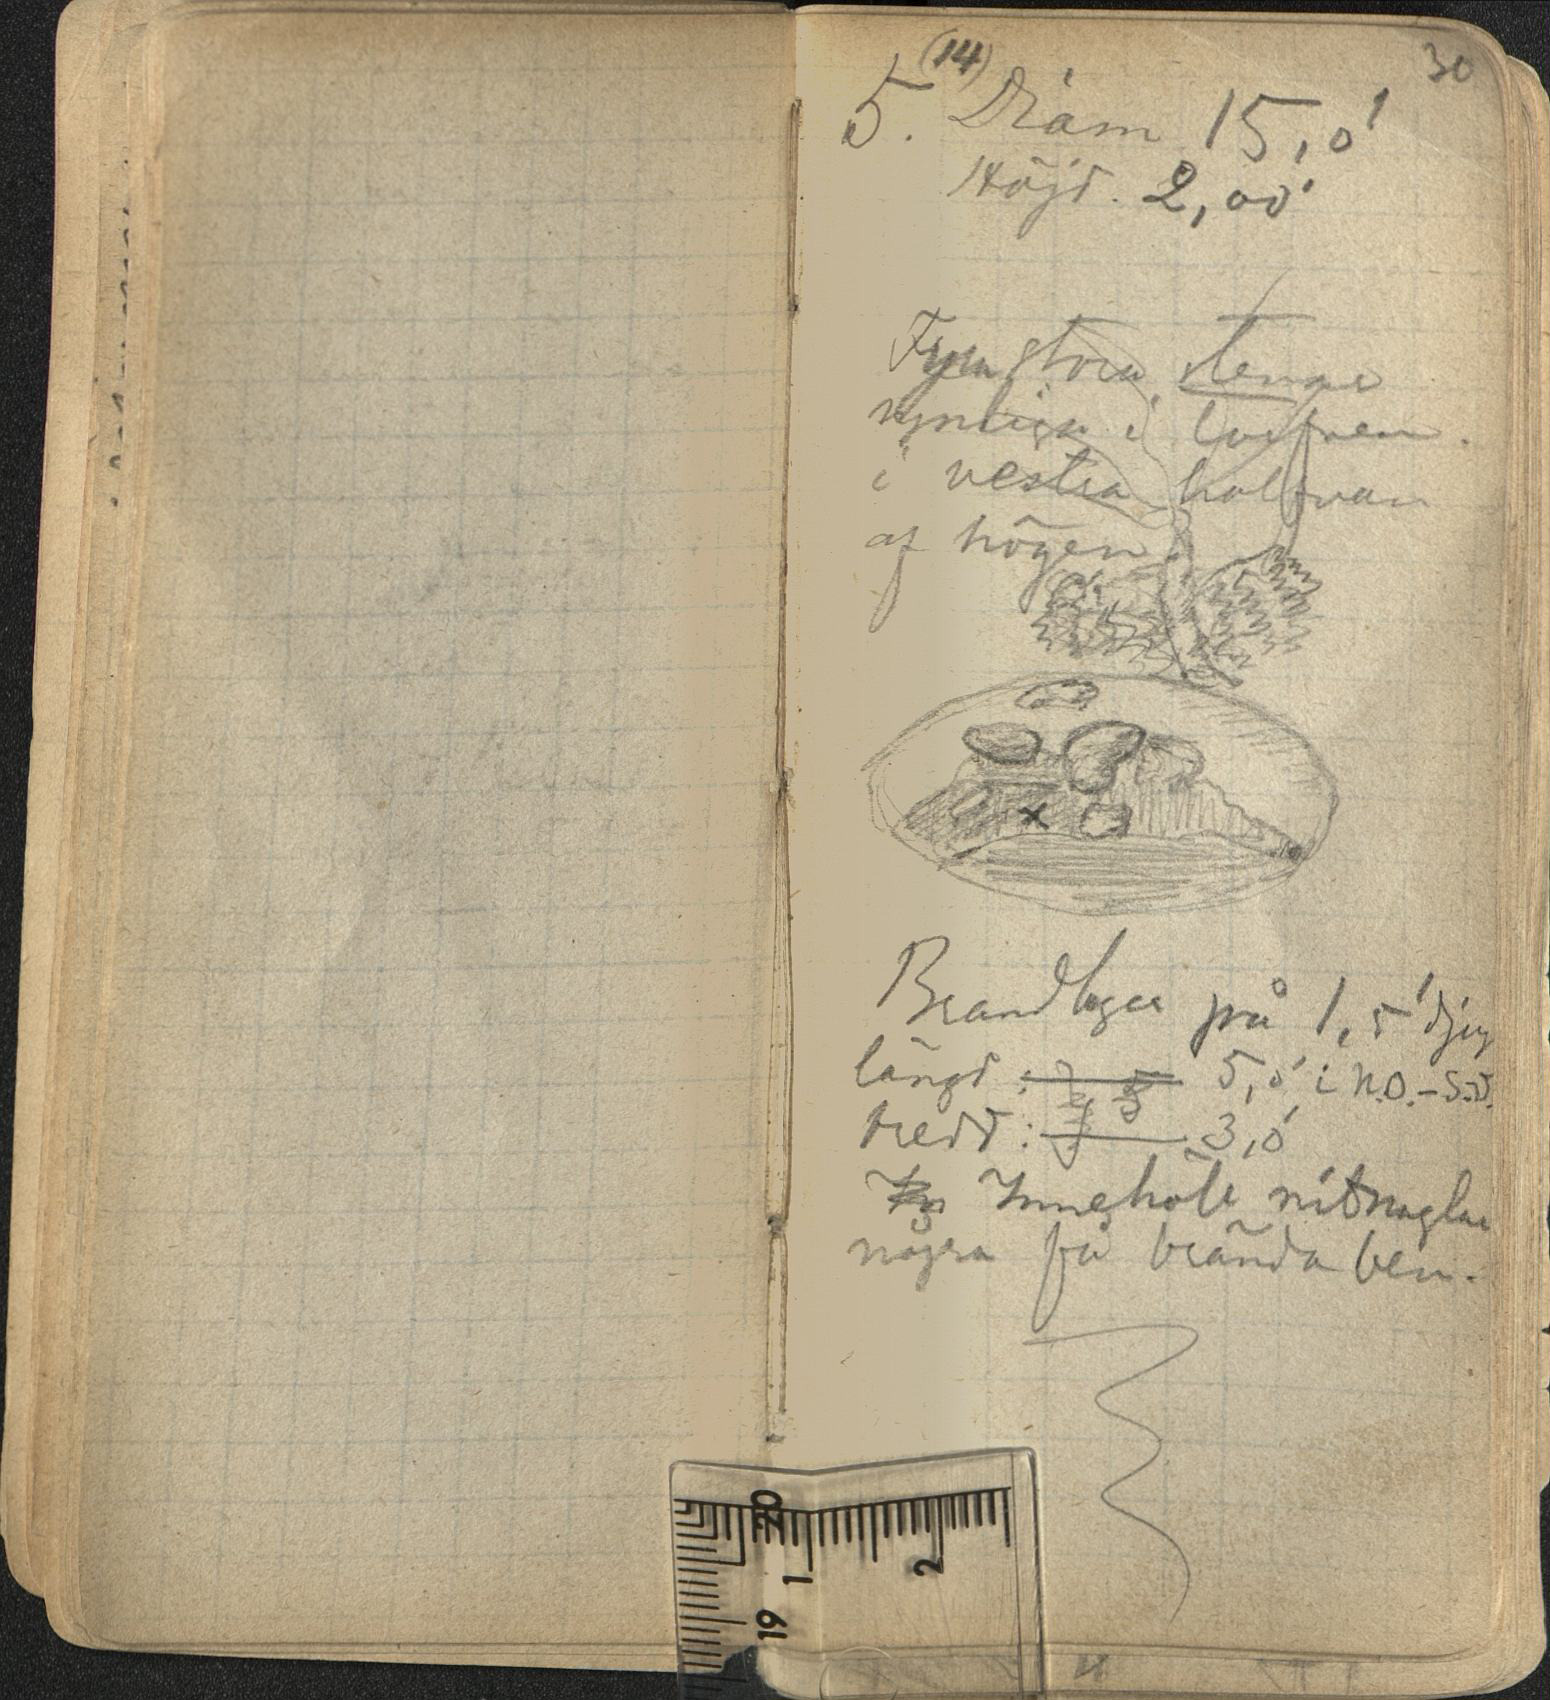 30
(14)
5. Diam 15,0'
Höjd. 2,00'
Fyra stora stenar
synliga i torfven.
i vestra halfvan
af högen.
x
Brandlager på 1,5' djup
längd: 5,0' i N.O.-S.V.
bredd: 3,0'
Innehöll nitnaglar
några få brända ben.
20
1
2
19